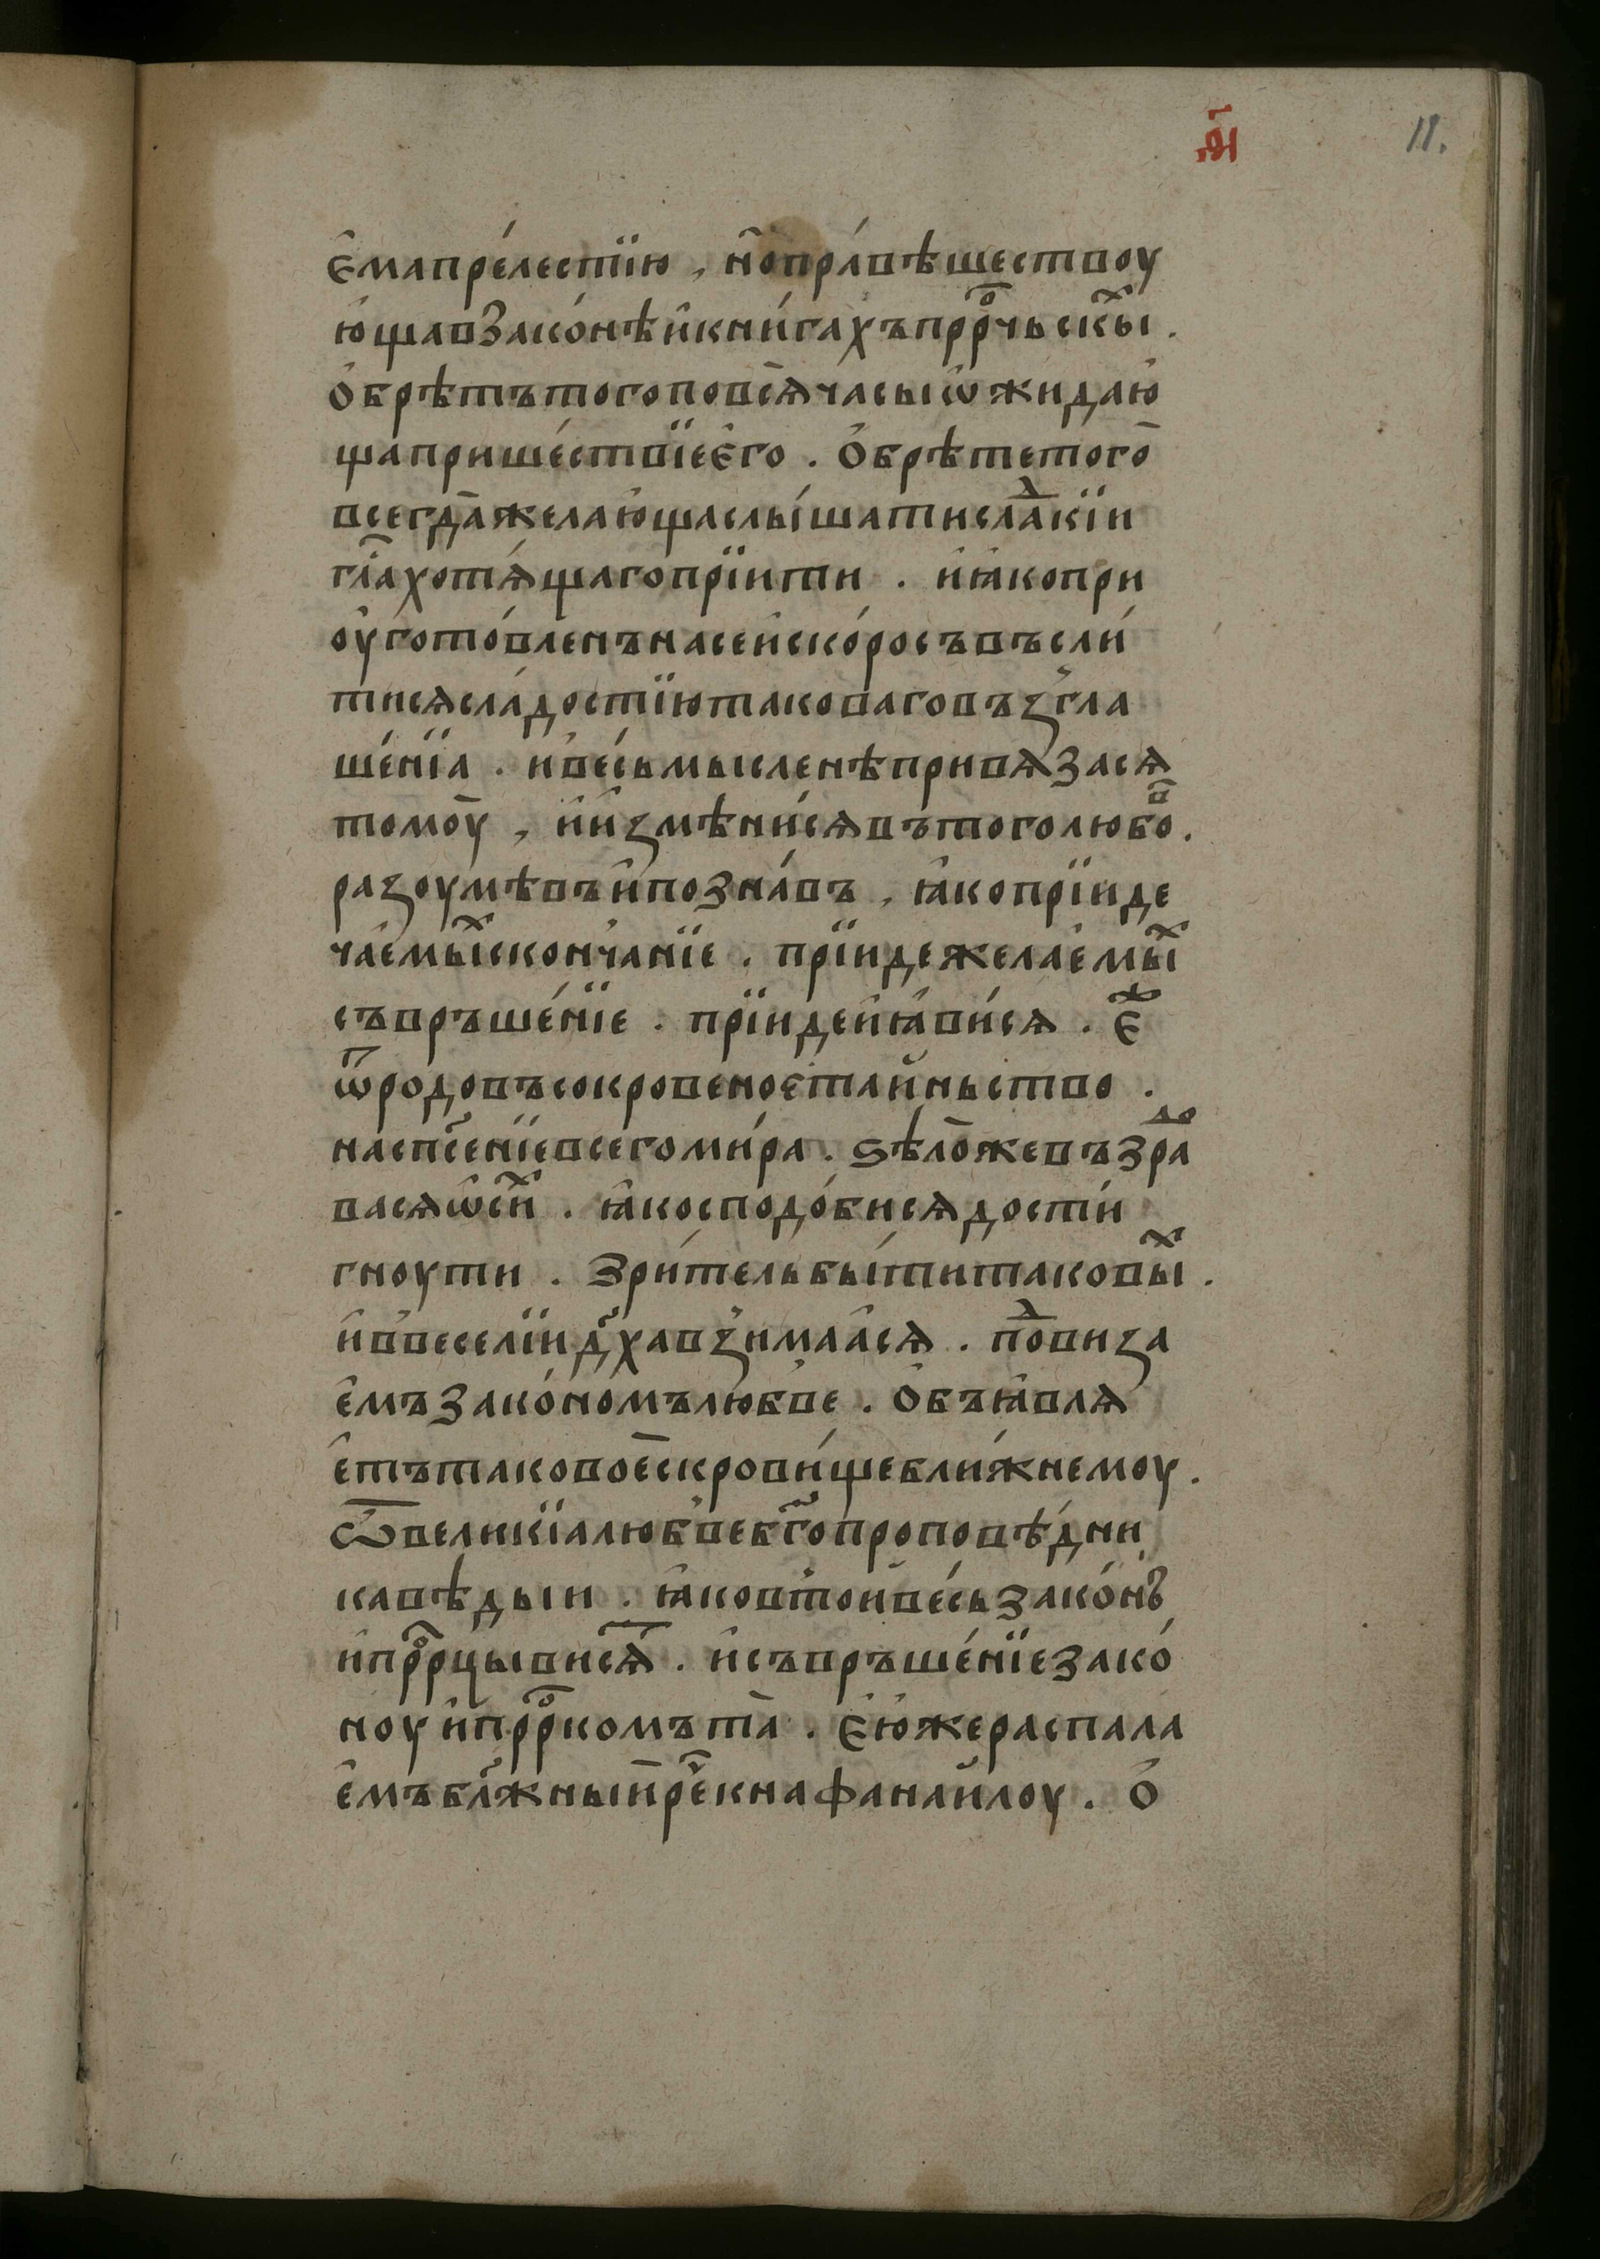 н҃і 11.
є҆мапре́лестїю , но҆пра́вѣшествоу
ю҆щавзако́нѣи҆кни́гахъпрⷪ҇рчьскыⷯ .
ѻ҆брѣтътогоповсѧ̀часыѡ҆жидаю҆
щаприше́ствїеє҆го . Ѻ҆брѣтетого̀
всегда̀желаю҆щаслы́шатислаⷣкїи
гл҃ахотѧ́щагопрїити . и҆ꙗ҆копри
оу҆гото́вленънасеи҆ско́росъвъсли́
тисѧсла́достїютаковаговъꙁгла
ше́нїа . и҆ве́сьмысленѣпривѧзасѧ
томоу̀ , и҆и҆ꙁмѣни́сѧвътоголюбоⷡ .
раꙁоумѣвъи҆позна́въ , ꙗ҆копрїиде
ча́емыⷯсконча́нїе . прїидежелае҆мыⷯ
съвръше́нїе . прїидеи҆ꙗ҆ви́сѧ . є҆ⷤ
ѿродовъсокровеноетайньство .
наспс҃енїевсегоми́ра . ѕѣло̀жевъзраⷣо
васѧѡ҆сиⷯ . ꙗ҆косподо́бисѧдости́
гноути . зри́тельбы́титаковыⷯ .
и҆ввеселїидх҃авꙁимаа҆сѧ . поⷣвиꙁа
е҆мъзако́номълюбве . ѻ҆бъꙗ҆влѧ
е҆тътаковоѐскрови́щебли́жнемоу .
ѿвеликїалюбвебг҃опроповѣ́дни
кавѣдыи . ꙗ҆ковтойве́сьзако́нъ
и҆прⷪ҇рцывисѧ́ . и҆съвръше́нїезако́
ноуи҆прⷪ҇ркомъта̀ . є҆ю҆жераспала
е҆мъбл҃жныйре́кнафанаи҆лоу . ѻ҆